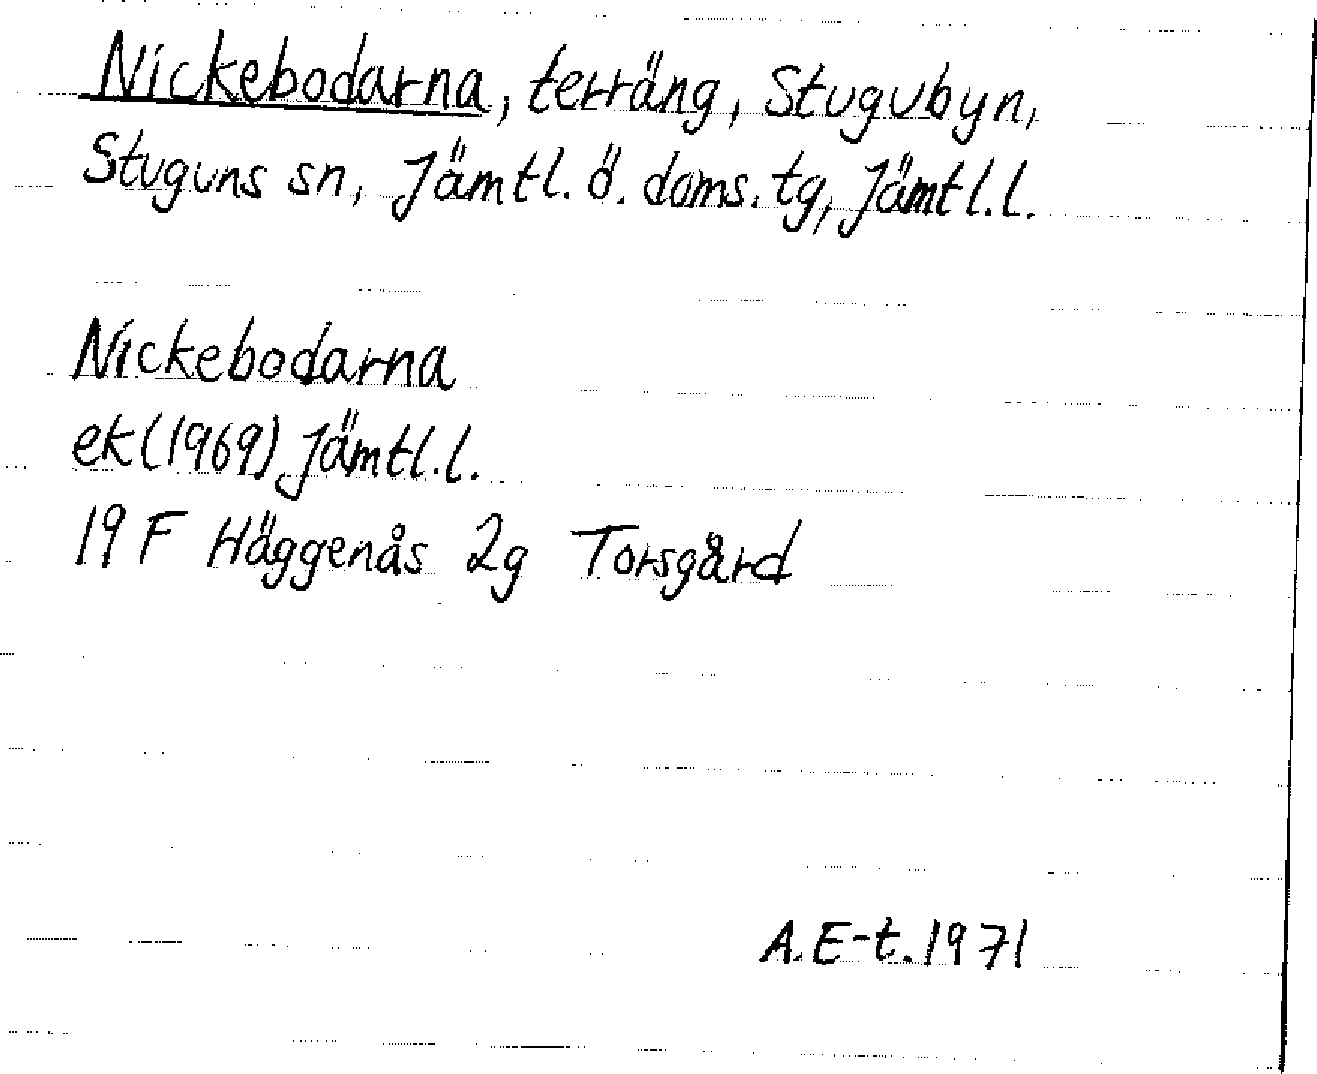 Nickebodarna, terräng, Stugubyn,
Stuguns sn, Jämtl. ö. doms. tg, Jämtl.l.
Nickebodarna
ek (1969) Jämtl.l.
19 F Häggenås 2g Torsgård
A.E-t. 1971